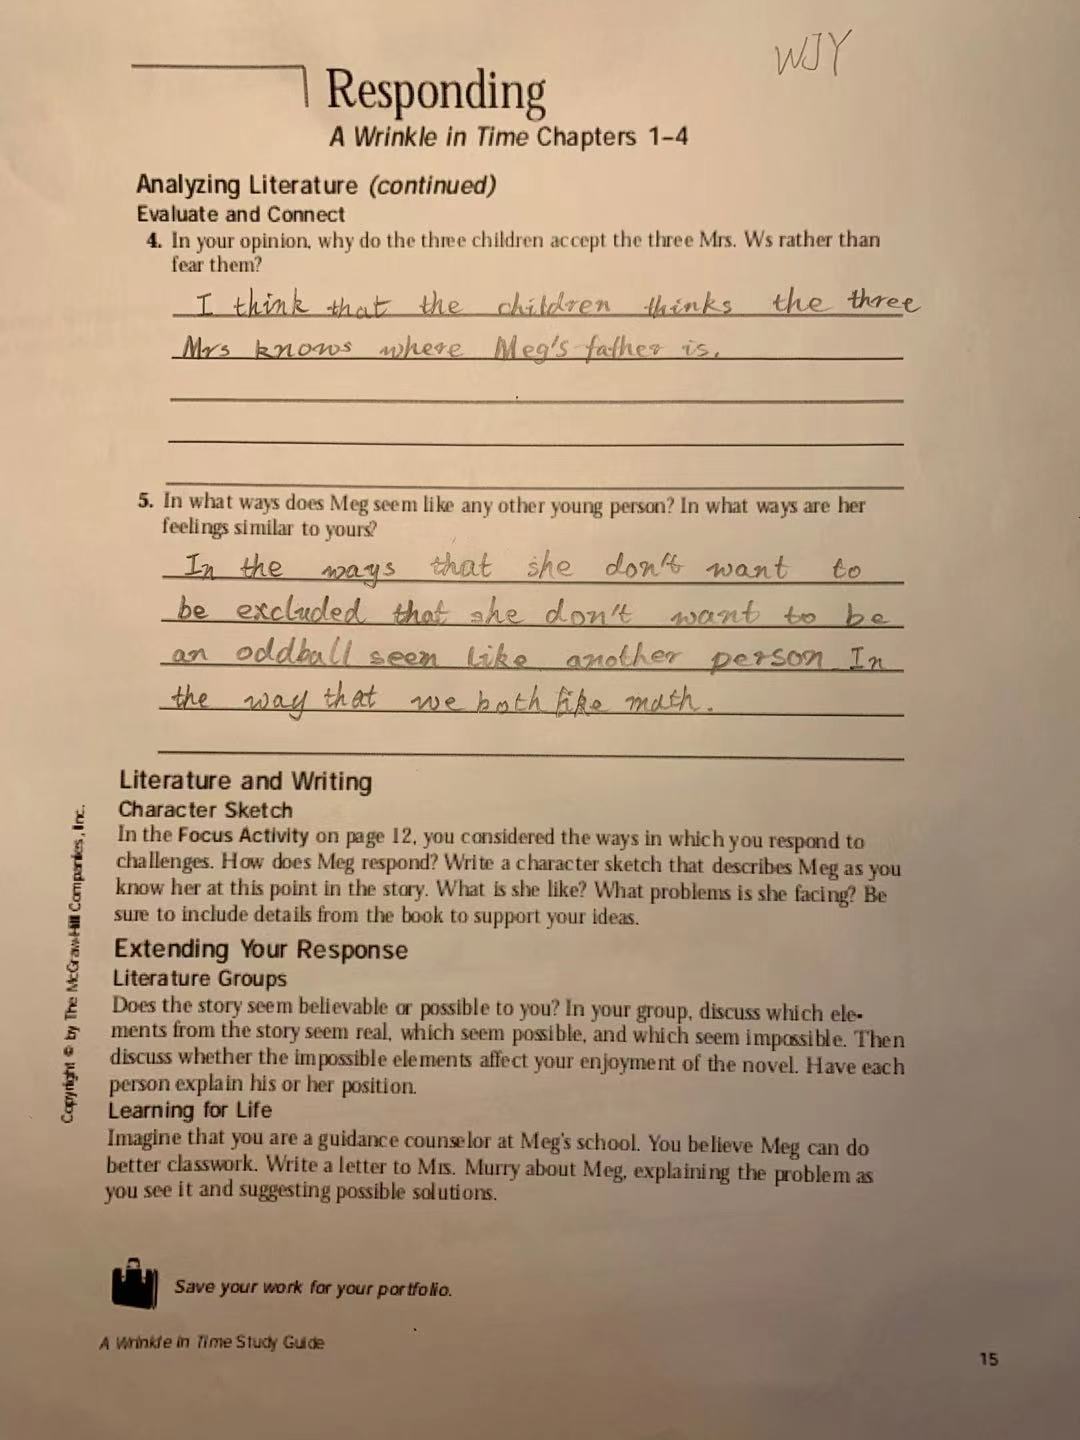 WJY
Responding
A Wrinkle in Time Chapters 1–4
Analyzing Literature (continued)
Evaluate and Connect
4. In your opinion, why do the three children accept the three Mrs. Ws rather than
fear them?
I think that the children thinks the three
Mrs knows where Meg's father is.
5. In what ways does Meg seem like any other young person? In what ways are her
feelings similar to yours?
In the ways that she don't want to
be excluded that she don't want to be
an oddball seem like another person In
the way that we both like math.
Literature and Writing
Character Sketch
In the Focus Activity on page 12, you considered the ways in which you respond to
challenges. How does Meg respond? Write a character sketch that describes Meg as you
know her at this point in the story. What is she like? What problems is she facing? Be
sure to include details from the book to support your ideas.
Extending Your Response
Literature Groups
Does the story seem believable or possible to you? In your group, discuss which ele-
ments from the story seem real, which seem possible, and which seem impossible. Then
discuss whether the impossible elements affect your enjoyment of the novel. Have each
person explain his or her position.
Learning for Life
Imagine that you are a guidance counselor at Meg's school. You believe Meg can do
better classwork. Write a letter to Mrs. Murry about Meg, explaining the problem as
you see it and suggesting possible solutions.
Save your work for your portfolio.
A Wrinkle in Time Study Guide
15
Copyright © by The McGraw-Hill Companies, Inc.